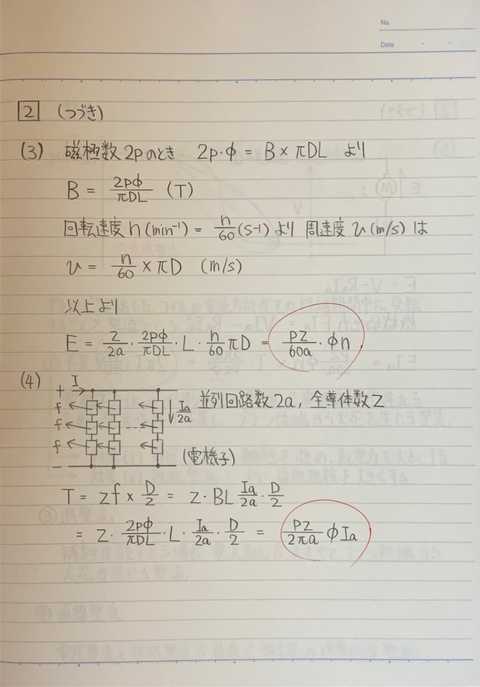 No.
Date
2 (つづき)
(3) 磁極数2pのとき 2p・φ = B × πDL より
B = 2pφ/πDL (T)
回転速度 n (min⁻¹) = n/60 (s⁻¹) より 周速度 v (m/s) は
v = n/60 × πD (m/s)
以上より
E = z/2a・2pφ/πDL・L・n/60 πD = pz/60a・φn
(4)
+ I
f f f Ia/2a 並列回路数2a, 全導体数z
− (電機子)
T = zf × D/2 = z・BL Ia/2a・D/2
= z・2pφ/πDL・L・Ia/2a・D/2 = pz/2πa φIa